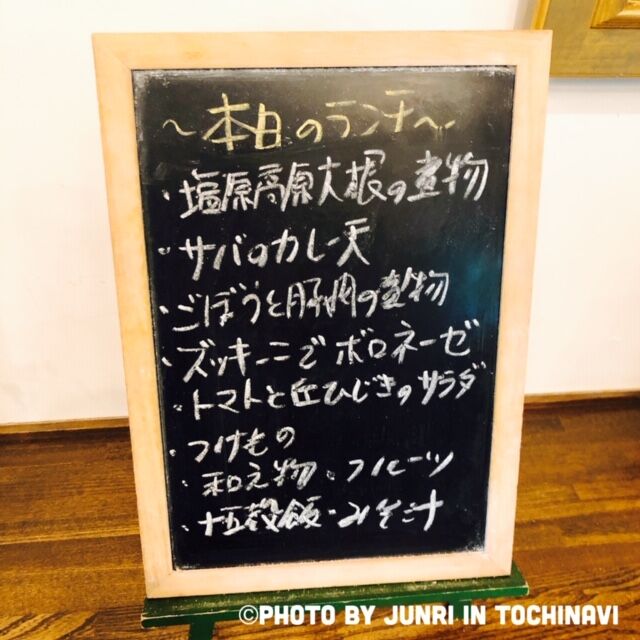 〜本日のランチ〜
・塩原高原大根の煮物
・サバのカレー天
・ごぼうと豚肉の煮物
・ズッキーニでボロネーゼ
・トマトと丘ひじきのサラダ
・つけもの
・和え物・フルーツ
・十五穀飯・みそ汁
©PHOTO BY JUNRI IN TOCHINAVI